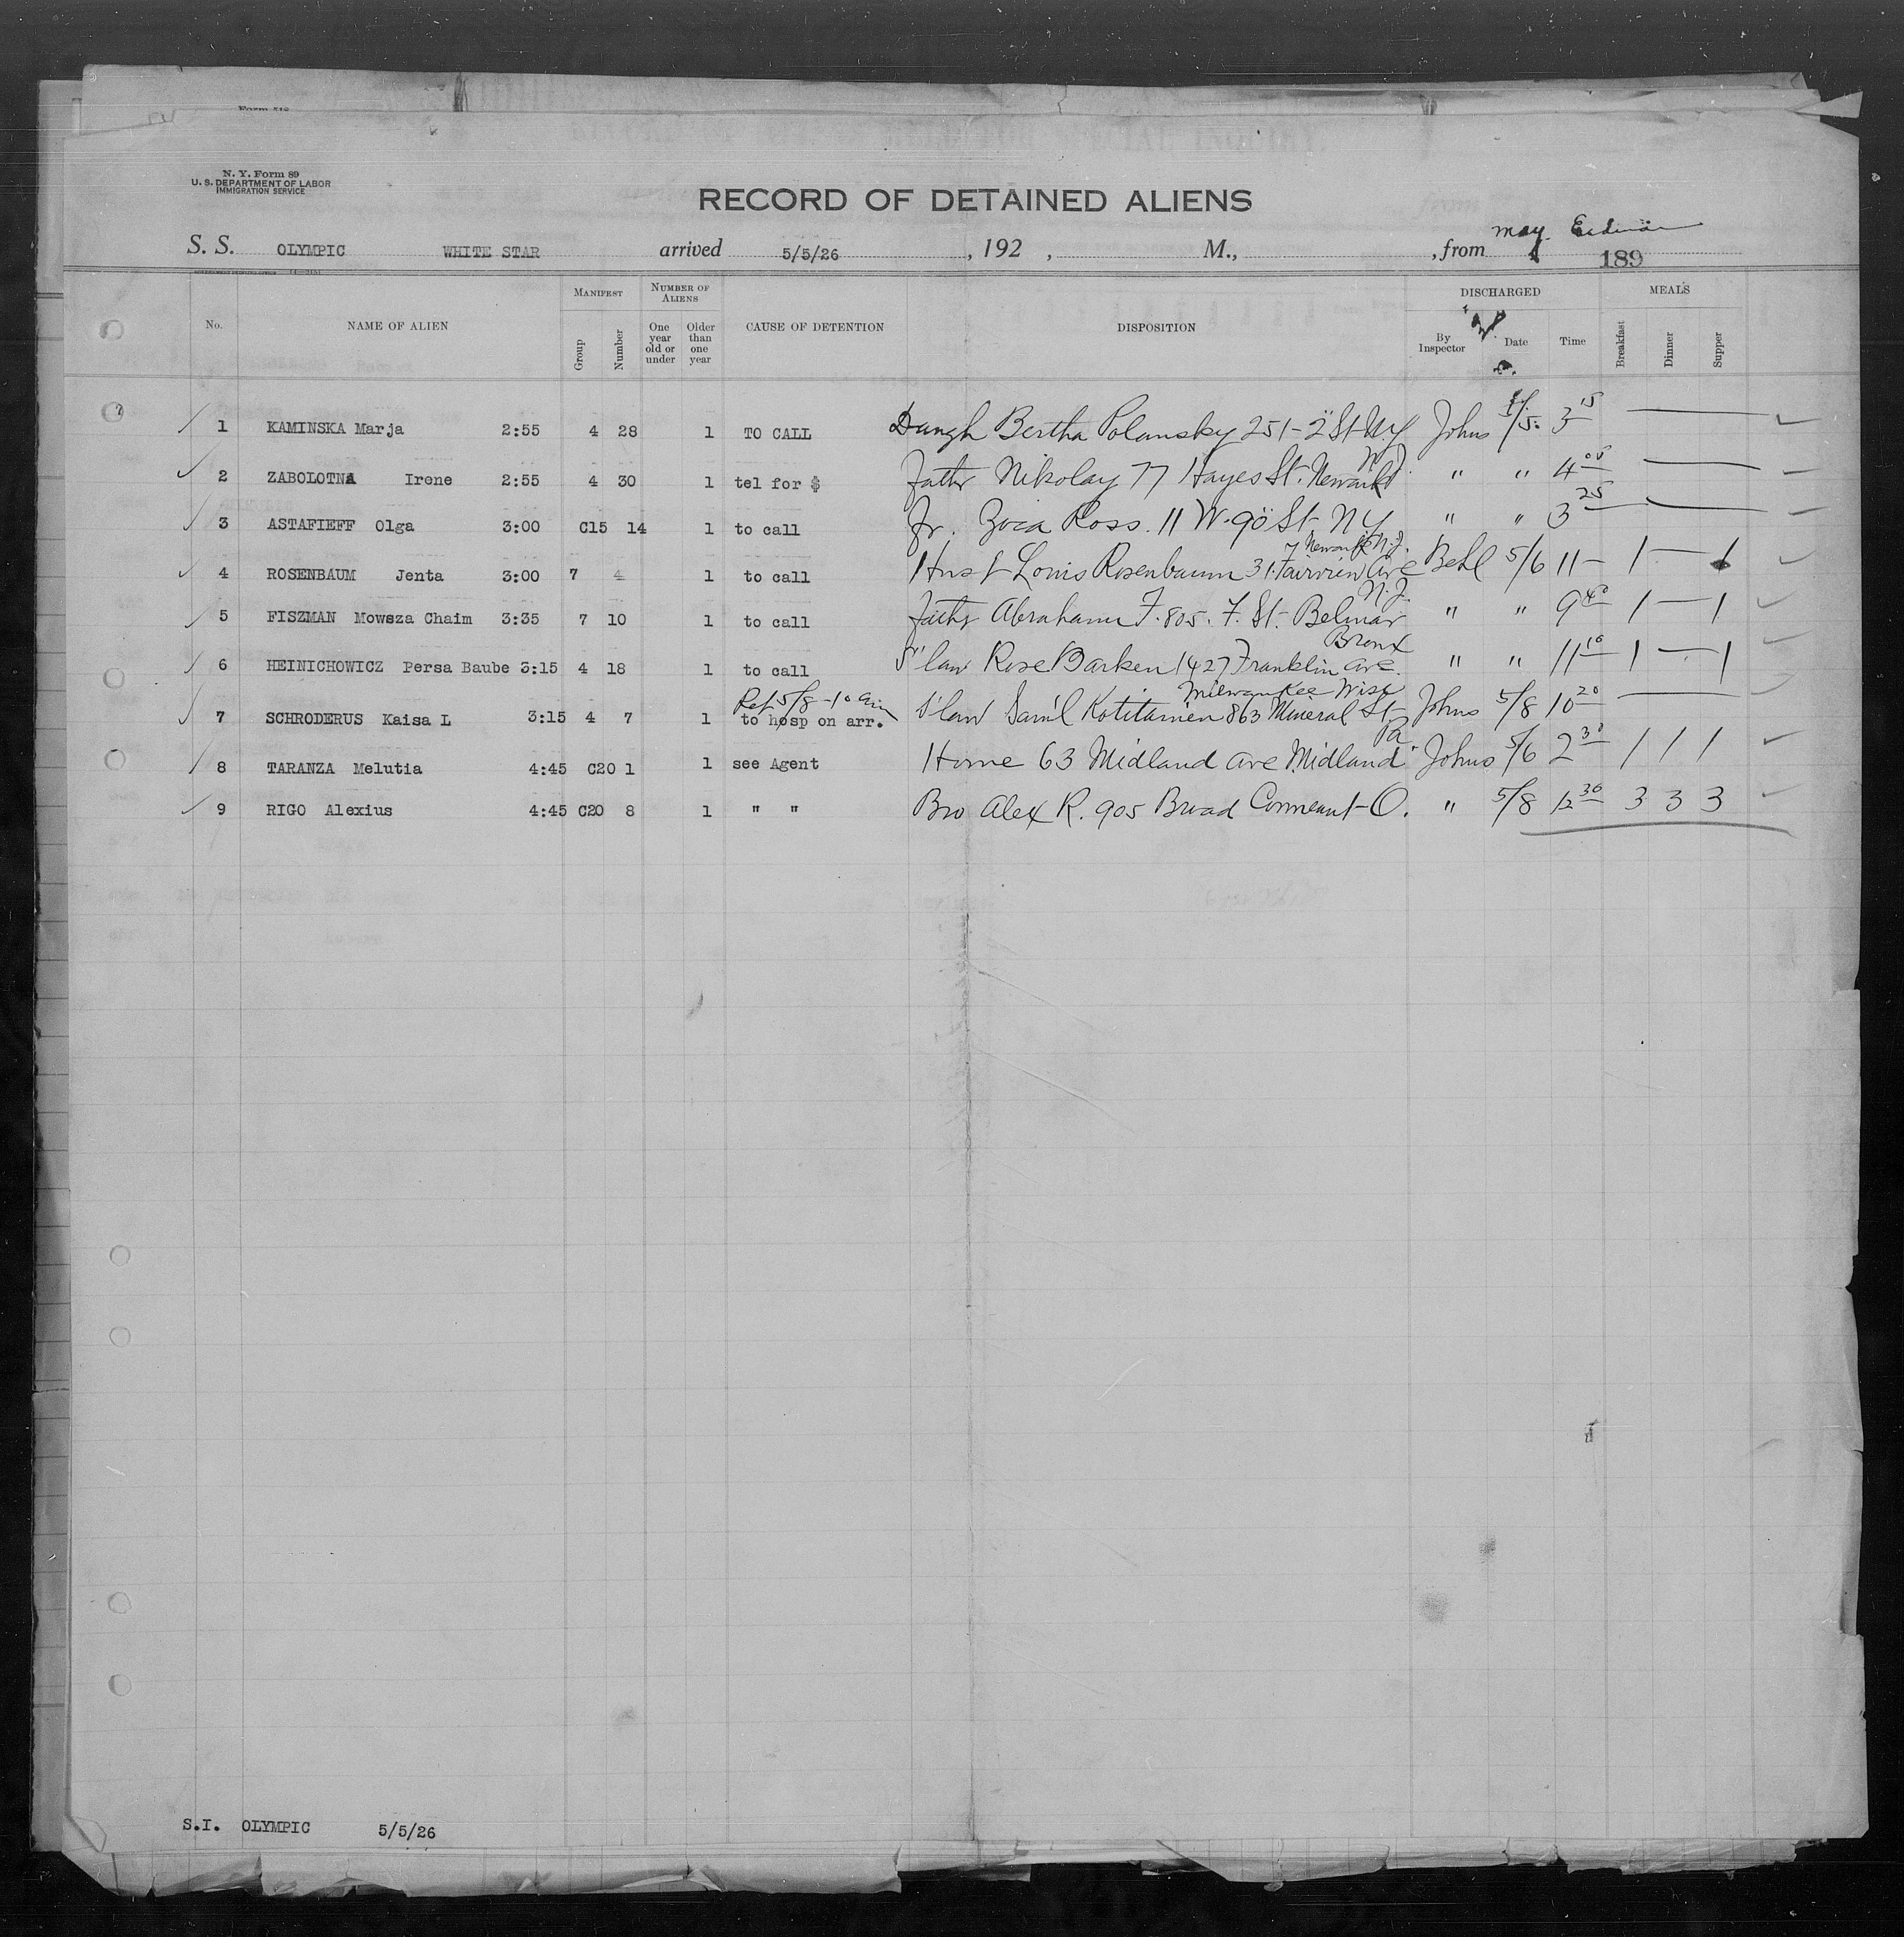 Form 518
N. Y. Form 89
U. S. DEPARTMENT OF LABOR
IMMIGRATION SERVICE
RECORD OF DETAINED ALIENS
S. S. OLYMPIC WHITE STAR arrived 5/5/26 , 192 , M., , from May
189
No. NAME OF ALIEN MANIFEST NUMBER OF ALIENS CAUSE OF DETENTION DISPOSITION DISCHARGED MEALS
Group Number One year old or under Older than one year By Inspector Date Time Breakfast Dinner Supper
1 KAMINSKA Marja 2:55 4 28 1 TO CALL Daugh Bertha Polansky 251-2" St N.Y Johns 5/5 3 15
2 ZABOLOTNA Irene 2:55 4 30 1 tel for $ Father Nikolay 77 Hayes St. Newark N.J. " " 4 00
3 ASTAFIEFF Olga 3:00 C15 14 1 to call Fr. Zoia Ross. 11 W. 90" St N Y " " 3 25
4 ROSENBAUM Jenta 3:00 7 4 1 to call Husb Louis Rosenbaum 31 Fairview Ave Newark N.J. Behl 5/6 11- 1 — 1
5 FISZMAN Mowsza Chaim 3:35 7 10 1 to call Father Abraham F. 805. F. St. Belmar N.J. " " 9 40 1 — 1
6 HEINICHOWICZ Persa Baube 3:15 4 18 1 to call S" law Rose Barken 1427 Franklin Ave. Bronx " " 11 10 1 — 1
7 SCHRODERUS Kaisa L 3:15 4 7 1 Ret 5/8 - 10 am to hosp on arr. S'law Sam'l Kotitamen 863 Mineral St Milwaukee Wisc Johns 5/8 10 20
8 TARANZA Melutia 4:45 C20 1 1 see Agent Home 63 Midland Ave Midland Pa Johns 5/6 2 30 1 1 1
9 RIGO Alexius 4:45 C20 8 1 " " Bro Alex R. 905 Broad Conneaut O. " 5/8 12 30 3 3 3
S.I. OLYMPIC 5/5/26